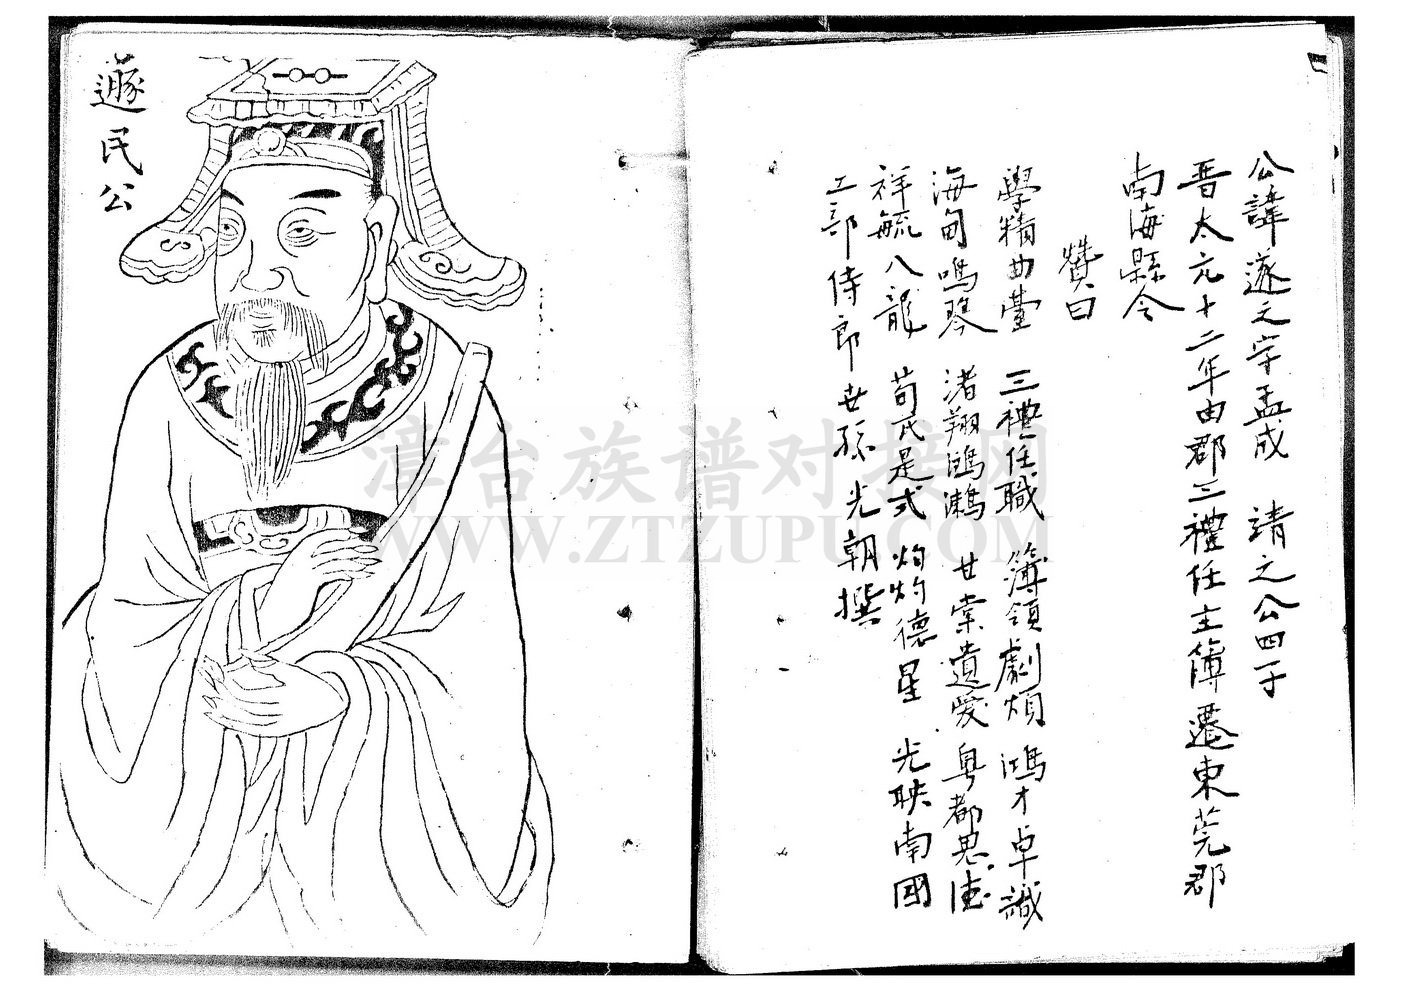 公諱遂之字孟成 靖之公四子
晋太元十二年由郡三禮任主簿遷東莞郡
南海縣令
贊曰
學精曲臺 三禮任職 簿領劇煩 鴻才卓識
海甸鳴琴 渚翔鴻鶒 甘棠遺愛 粤都思德
祥毓八龍 荀氏是式 灼灼德星 光映南國
工部侍郎世孫光朝撰
民公
漳台族谱对接网
WWW.ZTZUPU.COM